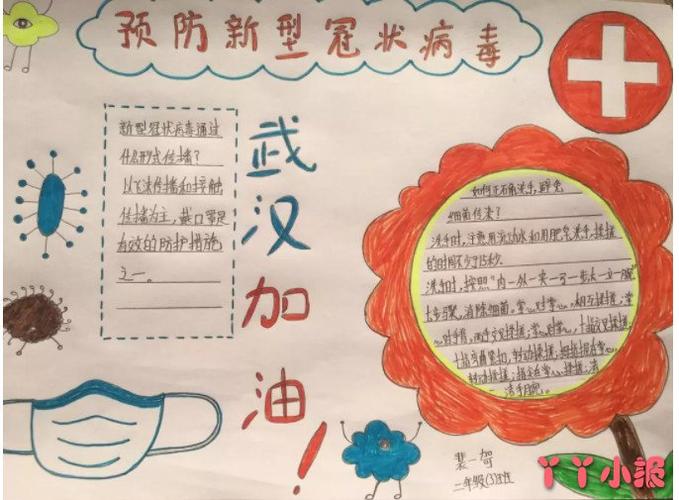 预防新型冠状病毒
新型冠状病毒通过
什么形式传播?
以飞沫传播和接触
传播为主,戴口罩是
有效的防护措施
之一。
武汉加油!
如何正确洗手,避免
细菌传染?
洗手时,注意用流动水和用肥皂洗手,揉搓
的时间不少于15秒.
洗手时,按照"内一外一夹一弓一大一立一腕"
七步骤,消除细菌。掌心对掌心相互揉搓,掌
心对手背,两手交叉揉搓;掌心对掌心,十指交叉揉搓,
十指弯曲紧扣,转动揉搓;拇指握在掌心,
转动揉搓;指尖在掌心揉搓;清
洁手腕。
裴一
二年级(3)班
丫丫小报